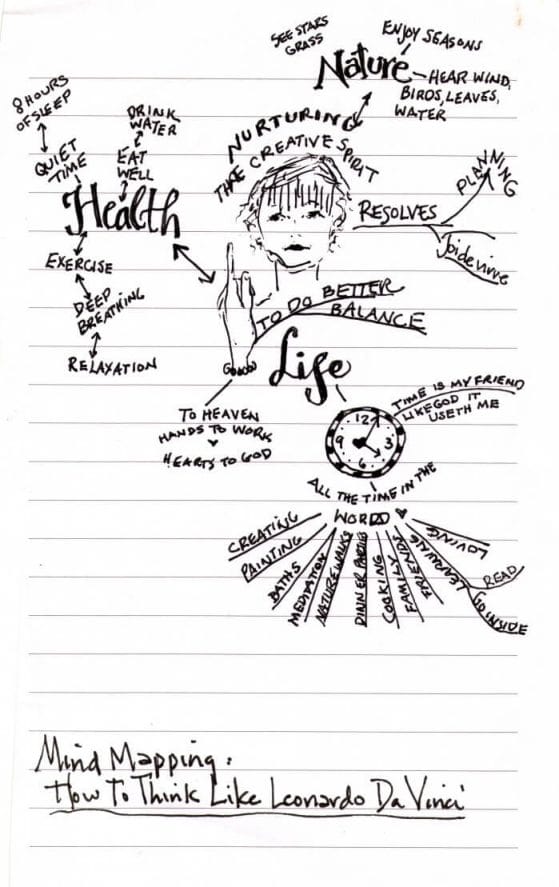 SEE STARS
GRASS
ENJOY SEASONS
Nature
HEAR WIND,
BIRDS, LEAVES,
WATER
8 HOURS
OF SLEEP
QUIET
TIME
DRINK
WATER
EAT
WELL
Health
EXERCISE
DEEP
BREATHING
RELAXATION
NURTURING
THE CREATIVE SPIRIT
RESOLVES
PLANNING
Joidevivre
TO DO BETTER
BALANCE
Life
TO HEAVEN
HANDS TO WORK
HEARTS TO GOD
12
3
6
9
TIME IS MY FRIEND
LIKE GOD IT
USETH ME
ALL THE TIME IN THE
WORLD
CREATING
PAINTING
BATHS
MEDITATION
NATURE WALKS
DINNER PARTIES
COOKING
FAMILY
FRIENDS
LEARNING
LOVING
READ
GO INSIDE
Mind Mapping:
How To Think Like Leonardo Da Vinci